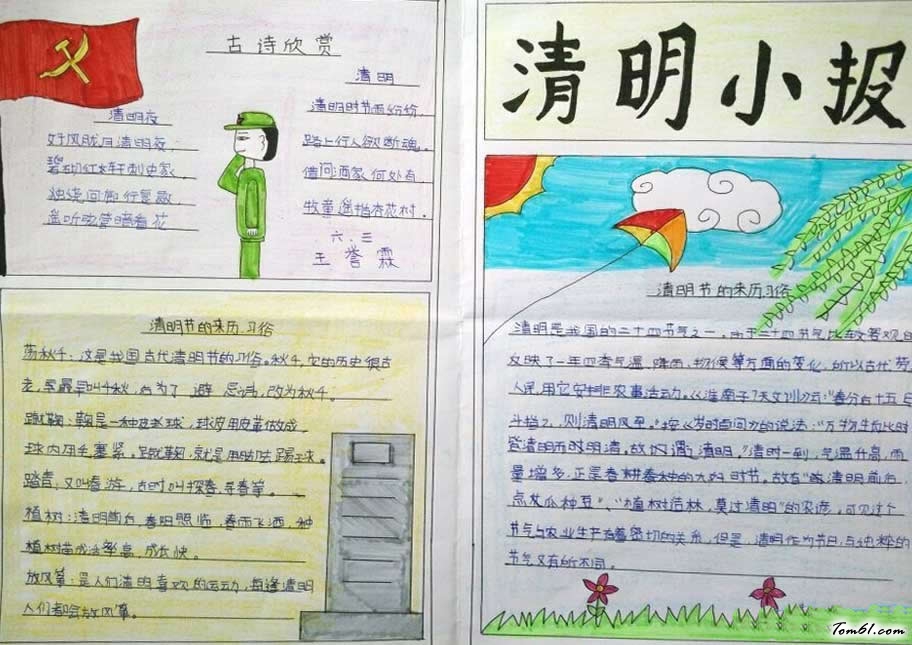 古诗欣赏
清明夜
好风胧月清明夜
碧砌红轩刺史家
独绕回廊行复歇
遥听弦管暗看花
清明
清明时节雨纷纷,
路上行人欲断魂。
借问酒家何处有
牧童遥指杏花村.
六.三
王誉霖
清明节的来历.习俗
荡秋千:这是我国古代清明节的习俗。秋千,它的历史很古
老,最早叫千秋,为了 避 忌讳,改为秋千。
蹴鞠:鞠是一种皮球,球皮用皮革做成
球内用毛塞紧。蹴鞠,就是用足去踢球。
踏青,又叫春游,古时叫探春、寻春等。
植树:清明前后,春阳照临,春雨飞洒,种
植树苗成活率高,成长快。
放风筝:是人们清明喜欢的运动,每逢清明
人们都会放风筝。
清明小报
清明节的来历习俗
清明是我国的二十四节气之一。由于二十四节气比较客观的
反映了一年四季气温、降雨、物候等方面的变化,所以古代劳
人民用它安排农事活动。《淮南子天文训》云:"春分后十五日
斗指乙,则清明风至。"按《岁时百问》的说法:"万物生长此时
皆清明而时明清。故谓清明。"清明一到,气温升高,雨
量增多,正是春耕春种的大好时节。故有"清明前后,
点瓜种豆"、"植树造林,莫过清明"的农谚。可见这个
节气与农业生产有着密切的关系,但是,清明作为节日,与纯粹的
节气又有所不同。
Tom61.com